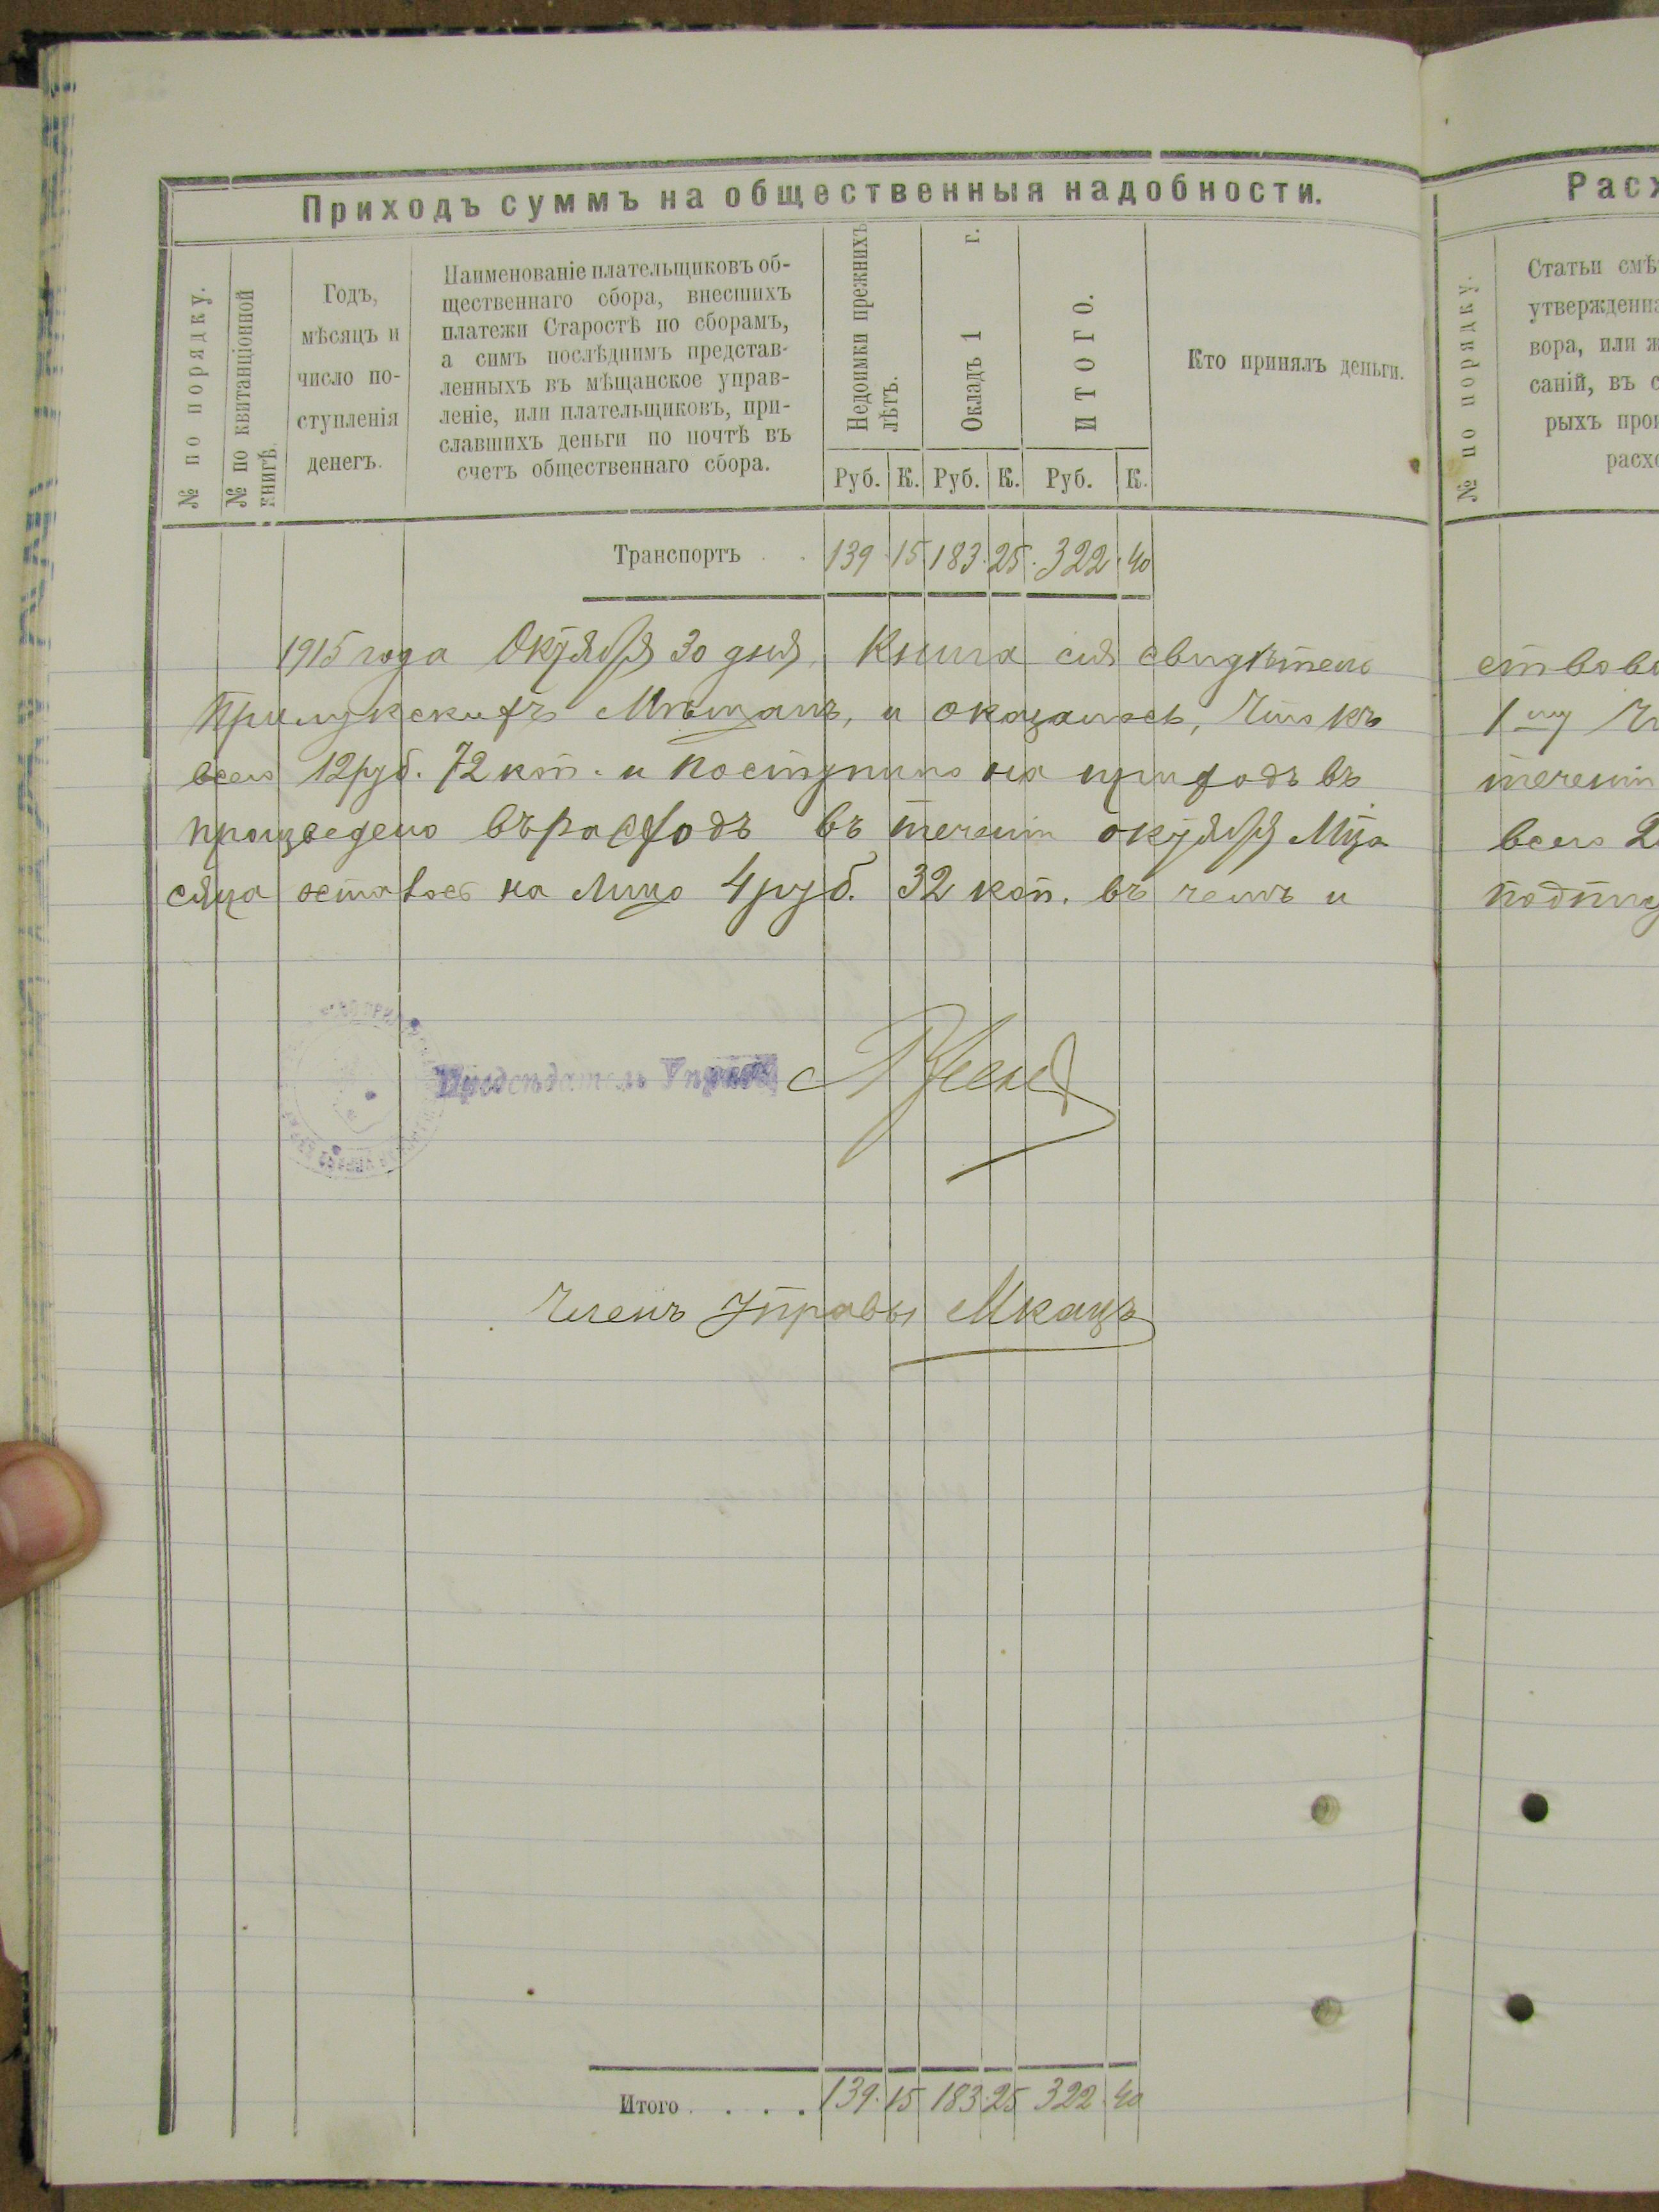 Приходъ суммъ на общественныя надобности.
№ по порядку.
№ по квитанціонной
книгѣ.
Годъ,
мѣсяцъ и
число по-
ступленія
денегъ.
Наименованіе плательщиковъ об-
щественнаго сбора, внесшихъ
платежи Старостѣ по сборамъ,
а симъ послѣднимъ представ-
ленныхъ въ мѣщанское управ-
леніе, или плательщиковъ, при-
славшихъ деньги по почтѣ въ
счетъ общественнаго сбора.
Недоимки прежнихъ
лѣтъ.
Окладъ 1 г.
ИТОГО.
Кто принялъ деньги.
Руб. К. Руб. К. Руб. К.
Транспортъ . . 139 15 183 25 322 40
1915 года Октября 30 дня, Книга сія свидѣтель
Прилукскихъ Мѣщанъ, и оказалось, Что къ
всего 12 руб. 72 коп. и поступило на приходъ въ
произведено въ расходъ въ теченіи октября Мѣ
сяца осталось на Лицо 4 руб. 32 коп. въ чемъ и
Предсѣдатель Управы
Членъ Управы МКацъ
Итого . . . . 139 15 183 25 322 40
Расх
№ по порядку.
Статьи смѣ
утвержденна
вора, или ж
саній, въ с
рыхъ прои
расхо
ствова
1му Чи
теченіи
всего 2
подпис